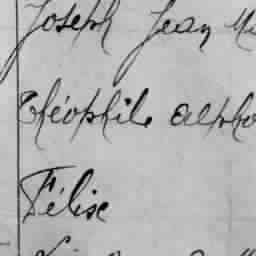 Joseph Jean M
Théophile alpho
Félix